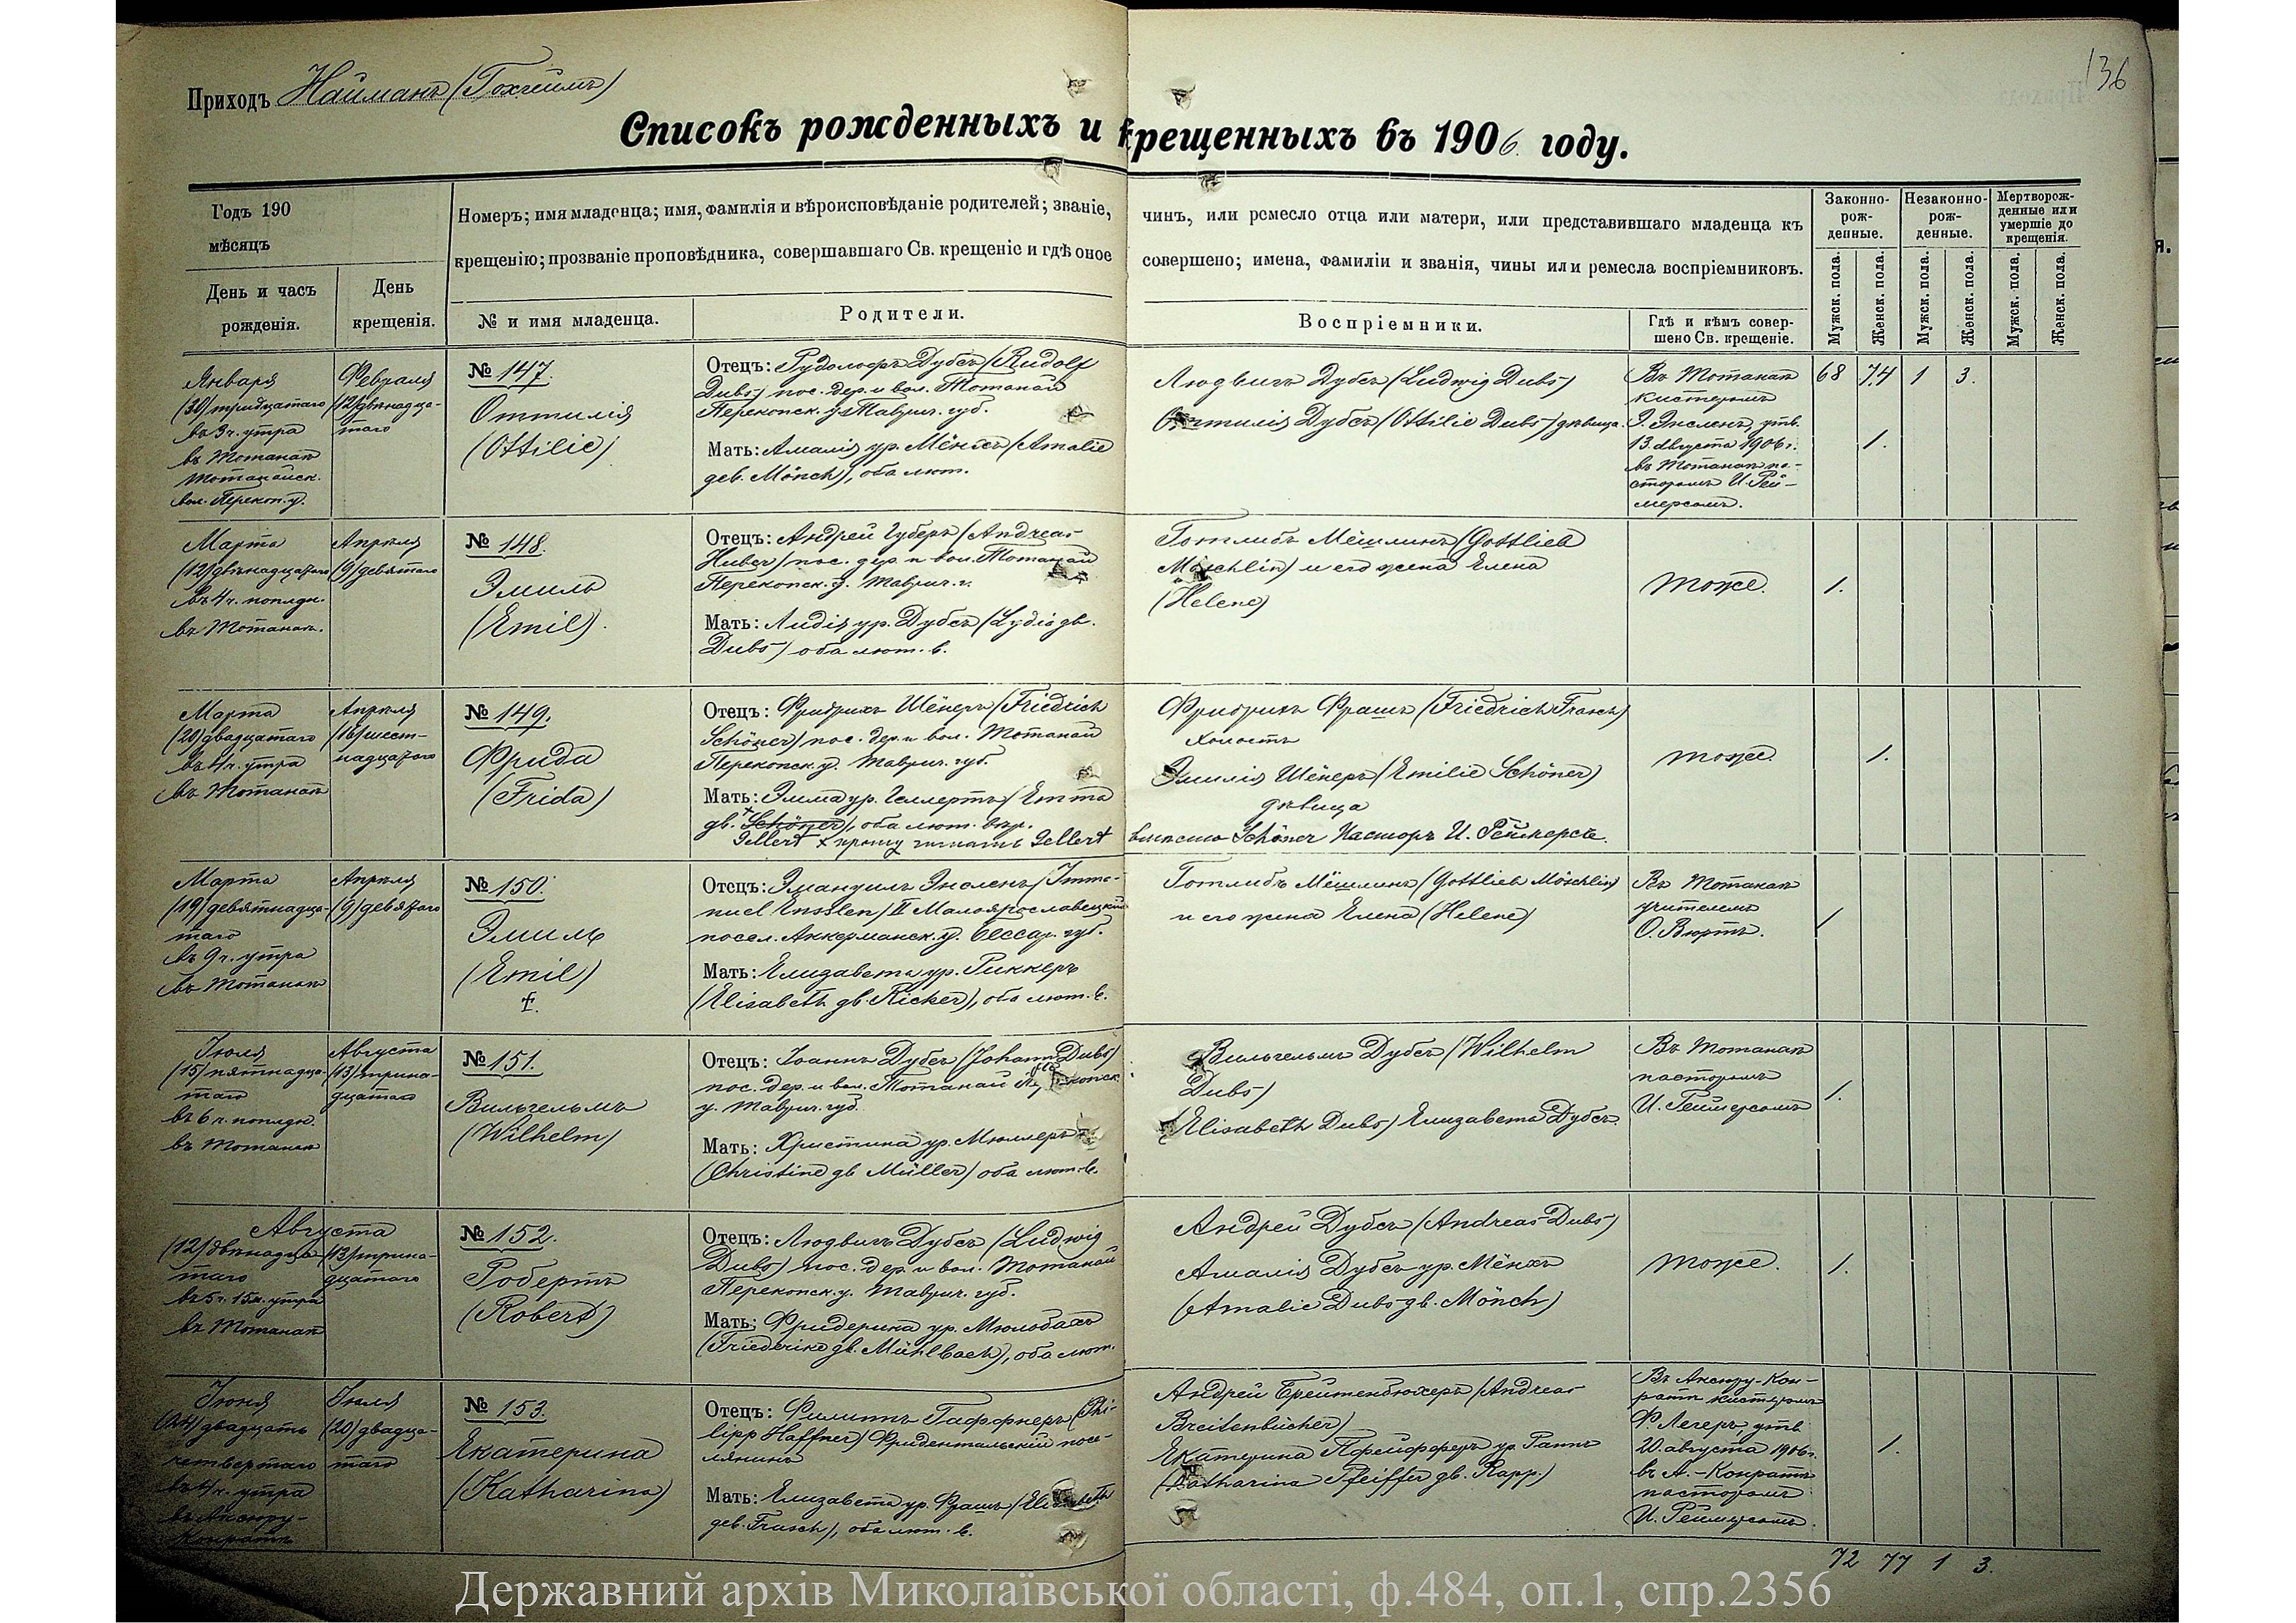 136
Приходъ Найманъ (Гохгеймъ)
Списокъ рожденныхъ и крещенныхъ въ 1906. году.
Годъ 190
мѣсяцъ
День и часъ
рожденія.
День
крещенія.
Номеръ; имя младенца; имя, фамилія и вѣроисповѣданіе родителей; званіе,
крещенію; прозваніе проповѣдника, совершавшаго Св. крещеніе и гдѣ оное
№ и имя младенца.
Родители.
чинъ, или ремесло отца или матери, или представившаго младенца къ
совершено; имена, фамиліи и званія, чины или ремесла воспріемниковъ.
Воспріемники.
Гдѣ и кѣмъ совер-
шено Св. крещеніе.
Законно-
рож-
денные.
Незаконно-
рож-
денные.
Мертворож-
денные или
умершіе до
крещенія.
Мужск. пола.
Женск. пола.
Мужск. пола.
Женск. пола.
Мужск. пола.
Женск. пола.
Января
(30) тридцатаго
въ 3 ч. утра
въ Тотанаѣ
Тотанайск.
вол. Перекоп. у.
Февраля
(12) двѣнадца-
таго
№ 147.
Оттилія
(Ottilie)
Отецъ: Рудольфъ Дубсъ (Rudolf
Dubs) пос. дер. и вол. Тотанай
Перекопск. у. Таврич. губ.
Мать: Амалія ур. Мёнхъ (Amalie
дев. Mönch), оба лют.
Людвигъ Дубсъ (Ludwig Dubs)
Оттилія Дубсъ (Ottilie Dubs) дѣвица.
Въ Тотанаѣ
кистеромъ
Э. Энсленъ, утв.
13. августа 1906 г.
въ Тотанаѣ па-
сторомъ И. Рей-
мерсомъ.
68 74 1 3.
1.
Марта
(12) двѣнадцатаго
въ 4 ч. попldн.
въ Тотанаѣ.
Апрѣля
(9) девятаго
№ 148.
Эмиль
(Emil).
Отецъ: Андрей Губеръ (Andreas
Huber) пос. дер. и вол. Тотанай
Перекопск. у. Таврич. г.
Мать: Лидія ур. Дубсъ (Lydia дв.
Dubs) оба лют. в.
Готлибъ Мёшлинъ (Gottlieb
Möschlin) и его жена Елена
(Helene)
Тоже.
1.
Марта
(20) двадцатаго
въ 4 ч. утра
въ Тотанаѣ
Апрѣля
(16) шест-
надцатаго
№ 149.
Фрида
(Frida)
Отецъ: Фридрихъ Шёнеръ (Friedrich
Schöner) пос. дер. и вол. Тотанай
Перекопск. у. Таврич. губ.
Мать: Эмма ур. Геллертъ (Emma
дв. Schöner), оба лют. вѣр.
Gellert × прошу читать Gellert
Фридрихъ Фрашъ (Friedrich Frasch)
холостъ
Эмилія Шёнеръ (Emilie Schöner)
дѣвица
вмѣсто Schöner Пасторъ И. Реймерсъ.
Тоже.
1.
Марта
(19) девятнадца-
таго
въ 9 ч. утра
въ Тотанаѣ
Апрѣля
(9) девятаго
№ 150.
Эмиль
(Emil)
Отецъ: Эмануилъ Энсленъ (Imma-
nuel Ensslen) II Малоярославецкій
посел. Аккерманск. у. Бессар. губ.
Мать: Елизавета ур. Риккеръ
(Elisabeth дв. Ricker), оба лют. в.
Готлибъ Мёшлинъ (Gottlieb Möschlin)
и его жена Елена (Helene)
Въ Тотанаѣ
учителемъ
О. Вюртъ.
1
Іюля
(15) пятнадца-
таго
въ 6 ч. попldн.
въ Тотанаѣ
Августа
(13) трина-
дцатаго
№ 151.
Вильгельмъ
(Wilhelm)
Отецъ: Іоаннъ Дубсъ (Johann Dubs)
пос. дер. и вол. Тотанай
у. Таврич. губ.
Мать: Христина ур. Мюллеръ
(Christine дв Müller) оба лют. в.
Вильгельмъ Дубсъ (Wilhelm
Dubs)
(Elisabeth Dubs) Елизавета Дубсъ.
Въ Тотанаѣ
пасторомъ
И. Реймерсомъ
1.
Августа
(12) двѣнадца-
таго
въ 5 ч. 15 м. утра
въ Тотанаѣ
(13) трина-
дцатаго
№ 152.
Робертъ
(Robert)
Отецъ: Людвигъ Дубсъ (Ludwig
Dubs) пос. дер. и вол. Тотанай
Перекопск. у. Таврич. губ.
Мать: Фридерика ур. Мюльбахъ
(Friederike дв. Mühlbach), оба лют.
Андрей Дубсъ (Andreas Dubs)
Амалія Дубсъ ур. Мёнхъ
(Amalie Dubs дв. Mönch)
Тоже.
1.
Іюня
(24) двадцать
четвертаго
въ 4 ч. утра
въ Аксюру-
Конратъ
Іюля
(20) двадца-
таго
№ 153.
Екатерина
(Katharina)
Отецъ: Филиппъ Гаффнеръ (Phi-
lipp Haffner) Фридентальскій посе-
лянинъ
Мать: Елизавета ур. Фрашъ (Elisabeth
дев. Frasch), оба лют. в.
Андрей Брейтенбюхеръ (Andreas
Breitenbücher)
Екатерина Пфейфферъ ур. Раппъ
(Katharina Pfeiffer дв. Rapp.)
Въ Аксюру-Кон-
ратъ кистеромъ
Ф. Легеръ, утв.
20. августа 1906 г.
въ А.-Конратъ
пасторомъ
И. Реймерсомъ.
1.
72 77 1 3.
Державний архів Миколаївської області, ф.484, оп.1, спр.2356